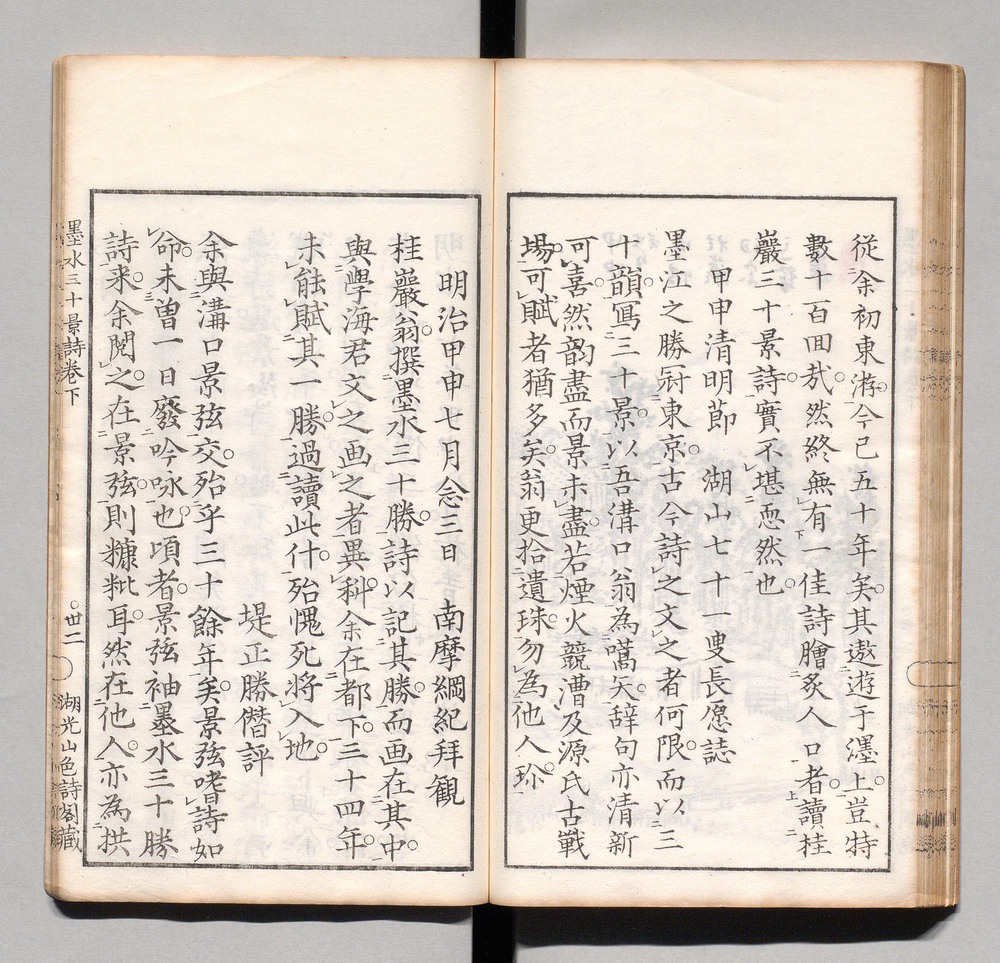 從余初東游今已五十年矣其遨遊于濹上豈特
數十百回哉然終無有一佳詩膾炙人口者讀桂
巖三十景詩實不堪恧然也
甲申清明節　湖山七十一叟長愿誌
墨江之勝冠東京古今詩之文之者何限而以三
十韻寫三十景以吾溝口翁為嚆矢辞句亦清新
可喜然韵盡而景未盡若煙火競漕及源氏古戰
場可賦者猶多矣翁更拾遺珠勿為他人珎
明治甲申七月念三日　南摩綱紀拜観
桂巖翁撰墨水三十勝詩以記其勝而画在其中
與學海君文之画之者異科余在都下三十四年
未能賦其一勝過讀此什殆愧死将入地
堤正勝僭評
余與溝口景弦交殆乎三十餘年矣景弦嗜詩如
命未曽一日廢吟咏也頃者景弦袖墨水三十勝
詩来余閲之在景弦則糠粃耳然在他人亦為拱
墨水三十景詩卷下
丗二
湖光山色詩閣藏